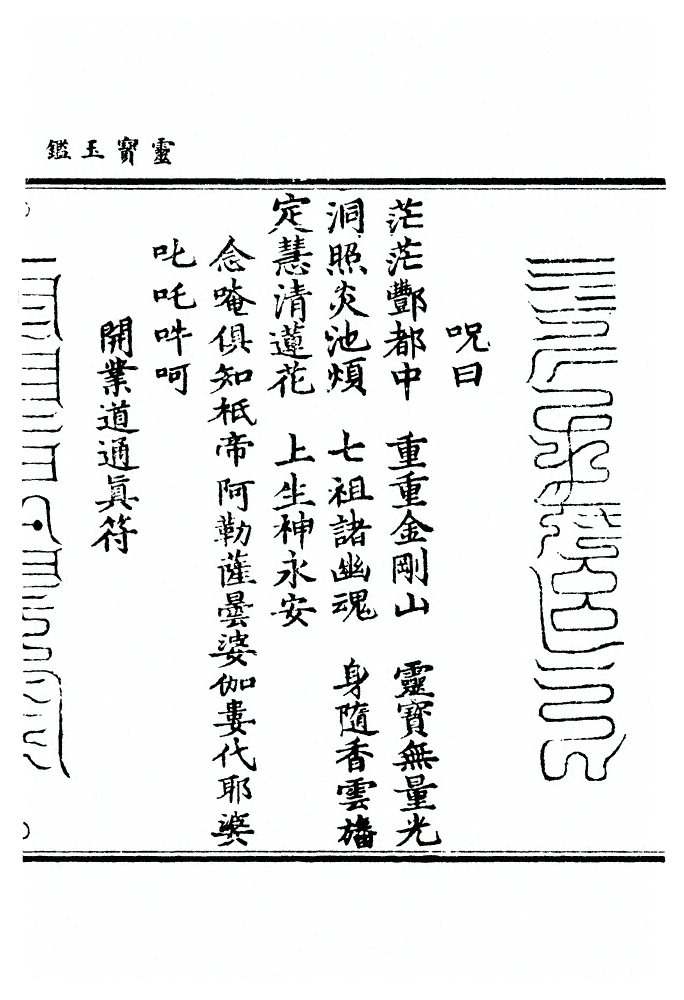 靈寳玉鑑
呪曰
茫茫酆都中 重重金剛山 靈寳無量光
洞照炎池煩 七祖諸幽魂 身隨香雲旛
定慧清蓮花 上生神永安
念唵俱知祇帝阿勒薩曇婆伽婁代耶娑
叱吒吽呵
開業道通眞符